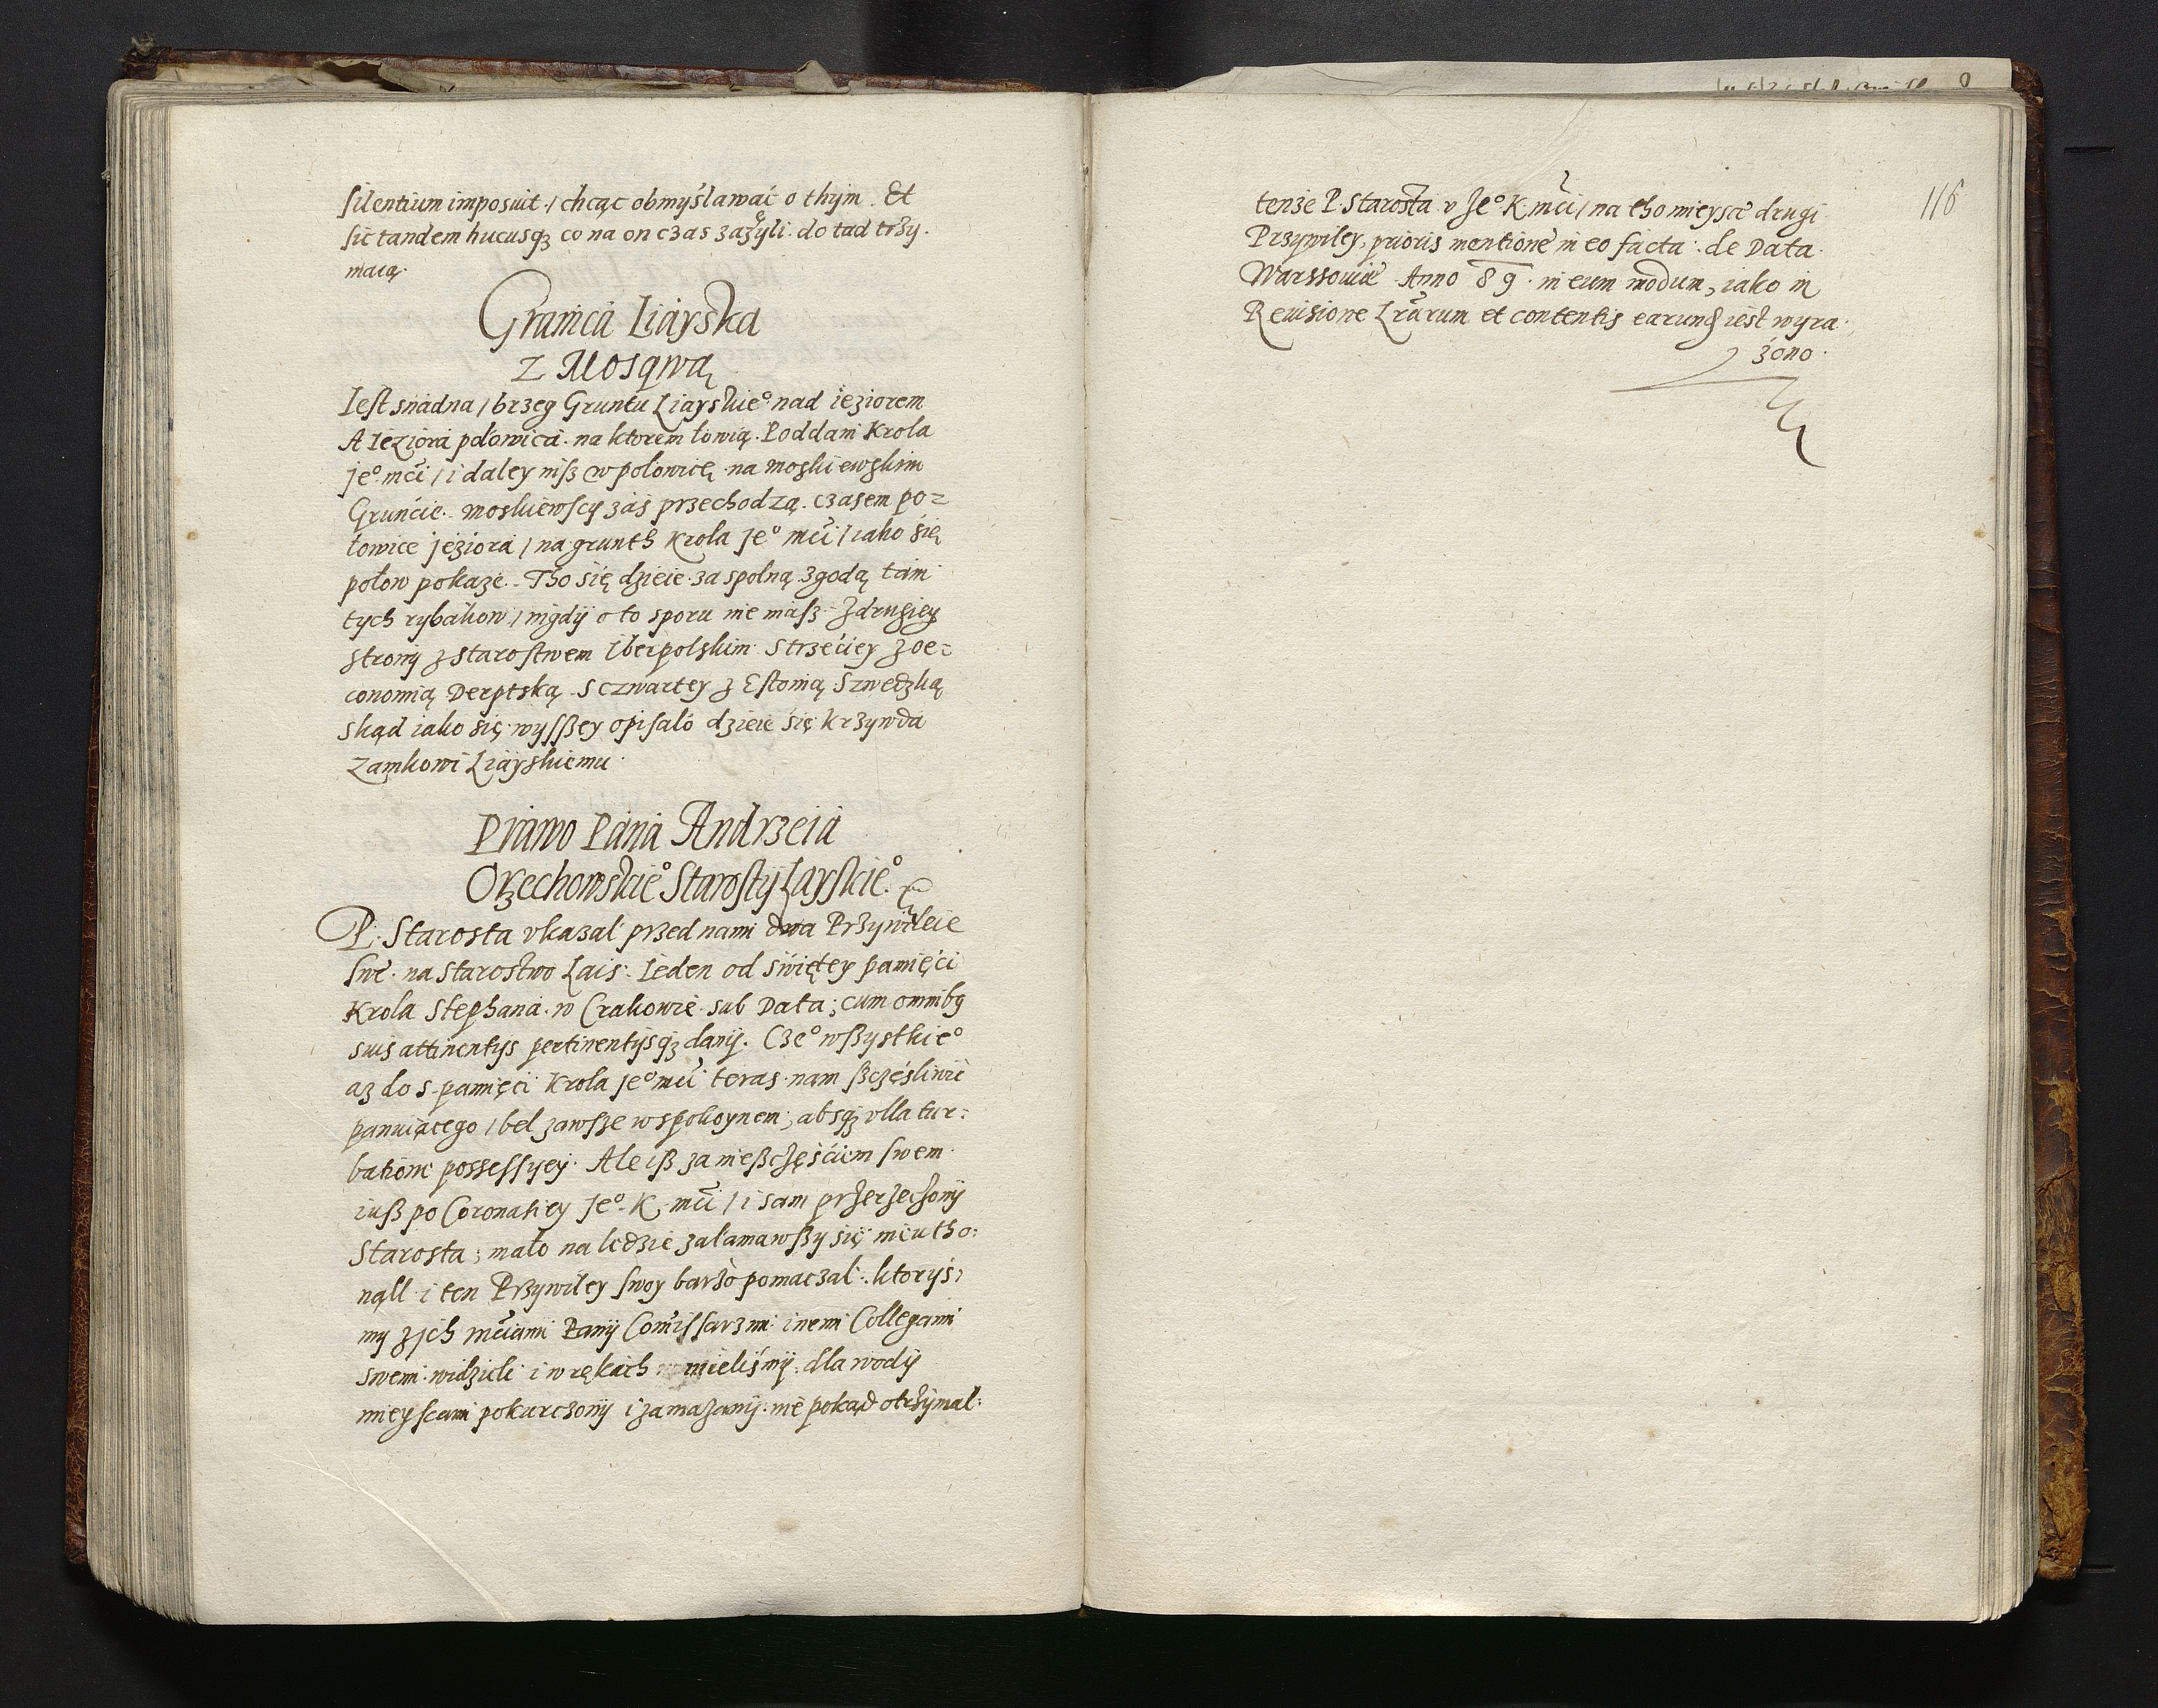 silentium imposuit / chcąc obmyślawać o thym. Et
sic tandem hucusqȝ co na on czas zażyli. do tad trzy.
maią.
Granica Liayska
Z Mosqwą
Iest snadna / brzeg Gruntu Liayskieº nad ieziorem
A Ieziora połowica. na ktorem łowią. Poddani Krola
Jeº mći / i daley niß w połowicę na moskiewskim
Gruncie. moskiewscy zaś przechodzą. czasem po=
łowice jeziora / na grunth Krola Jeº mći / iako się
połow pokaże. Tho się dzieie za spolną zgodą tam
tych rybakow / nigdÿ o to sporu nie maß. Z drugiey
stronÿ z Starostwem Oberpolskim. S trzeciey z oe=
conomią Derptską. S czwartey z Estonią Szwedzką
skąd iako się wyßßey opisało dzieie się krzywda
Zamkowi Liayskiemu.
Prawo Pana Andrzeia
Orzechowskieº Starostÿ Layskieº.
P. Starosta vkazał przed nami dwa Przywileie
swe. na Starostwo Lais. Ieden od świętey pamięci
Krola Stephana. w Crakowie sub Data; cum omnibꝯ
suis attinentÿs pertinentÿsqȝ danÿ. Czeº wßystkieº
az do s. pamięci Krola Jeº mći teras nam ßczęśliwie
panuiącego / beł zawsze w spokoynem; absqȝ vlla tur=
batione possessÿey. Ale iß za nießczęściem swem
iuß po Coronatiey Jeº K. mći / i sam przerzeczonÿ
Starosta; mało na ledzie załamawßy się nie utho=
nąll i ten Przywiley swoy barzo pomaczał. ktoryś=
my z Jch mćiami Panÿ Comissarzmi inemi Collegami
swemi widzieli i w rękach mieliśmÿ. dla wodÿ
mieyscami pokurczonÿ i zamazanÿ. nie pokąd otrzÿmał.
116
tenze P. Starosta v Jeº K mći / na tho mieysce drugi
Przywiley, prioris mentione in eo facta. de Data
Warssouiæ Anno 89. in eum modum, iako in
Reuisione Lrarum et contentis earundꝫ iest wyra
zono.